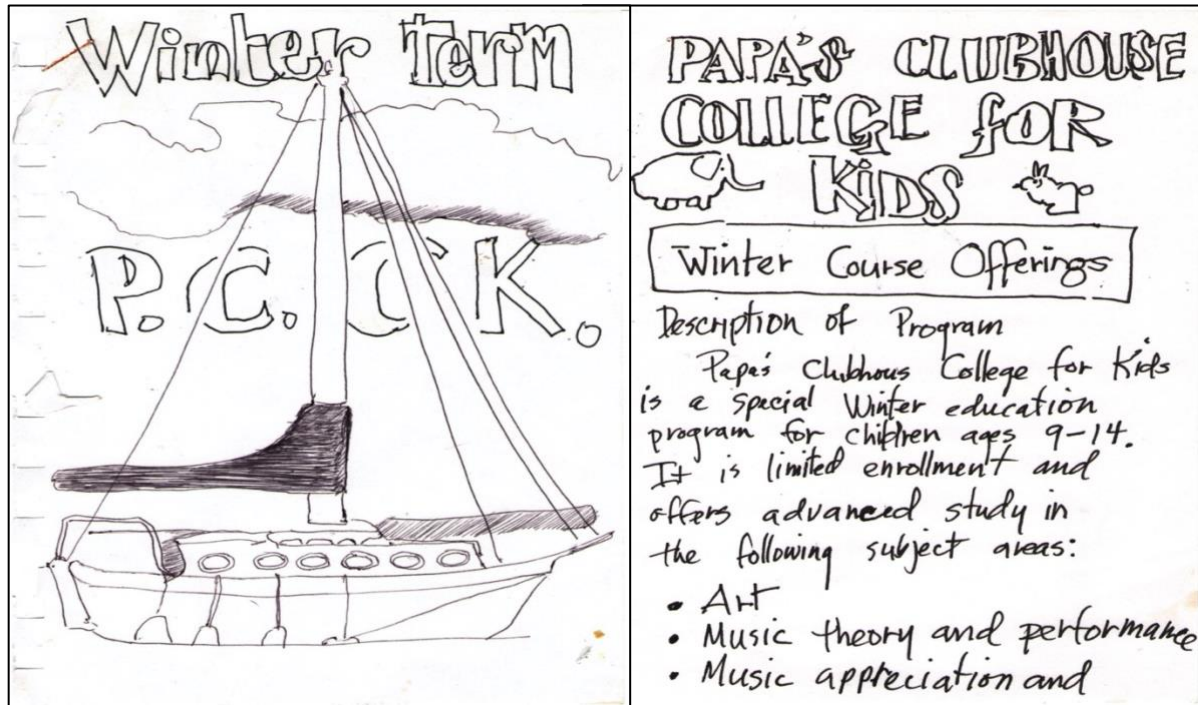 Winter Term
P.C.C K.
PAPA'S CLUBHOUSE
COLLEGE for
KIDS
Winter Course Offerings
Description of Program
Papa's Clubhous College for Kids
is a special Winter education
program for children ages 9-14.
It is limited enrollment and
offers advanced study in
the following subject areas:
• Art
• Music theory and performance
• Music appreciation and